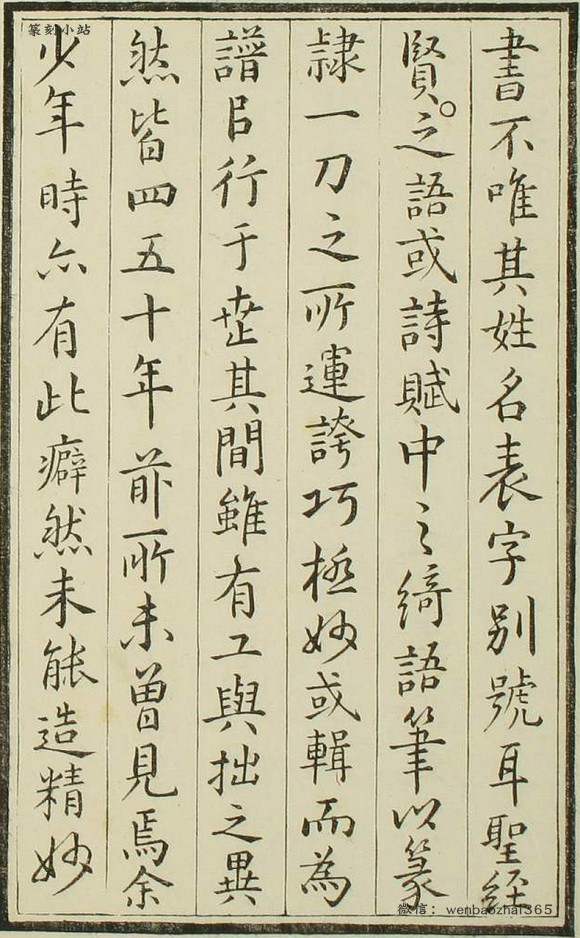 書不唯其姓名表字别號耳聖経
賢之語或詩賦中之綺語筆以篆
隷一刀之所運誇巧極妙或輯而為
譜㠯行于世其間雖有工與拙之異
然皆四五十年前所未曽見焉余
少年時亦有此癖然未能造精妙
篆刻小站
微信: wenbaozhai365